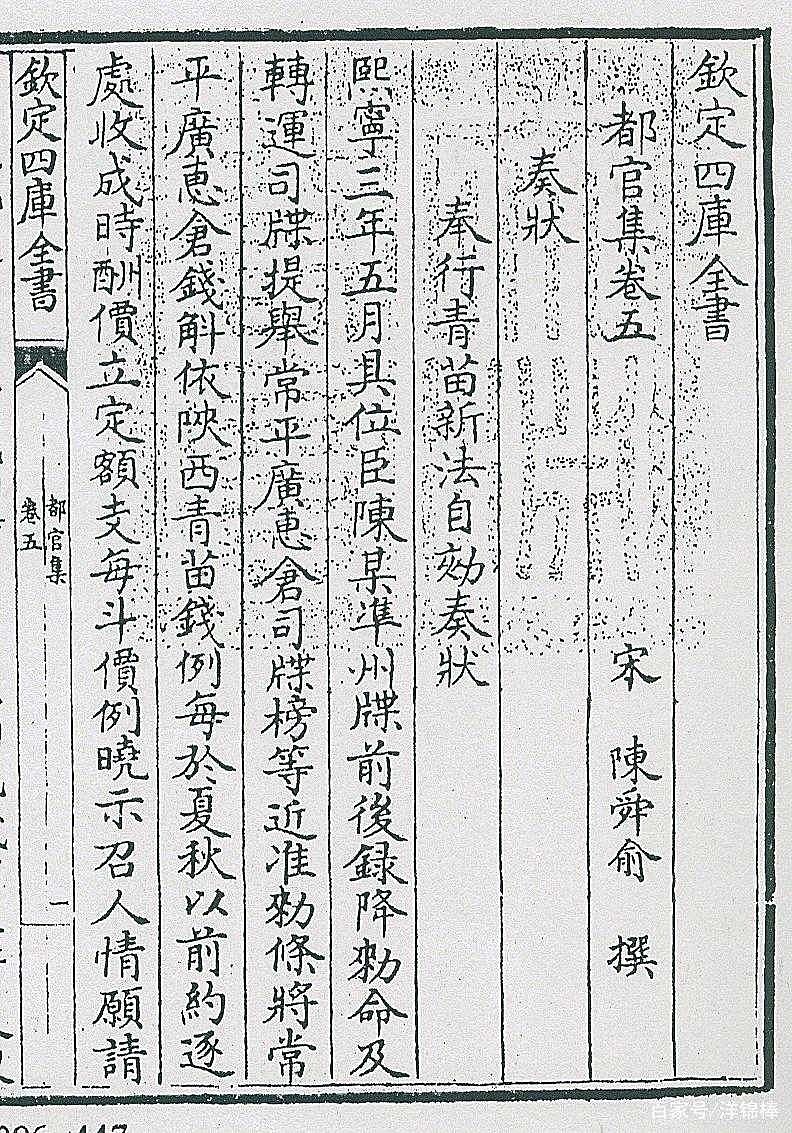 欽定四庫全書
都官集卷五　宋　陳舜俞　撰
奏狀
奉行青苗新法自劾奏狀
熙寧三年五月具位臣陳某準州牒前後錄降勑命及
轉運司牒提舉常平廣惠倉司牒榜等近准勑條將常
平廣惠倉錢斛依陝西青苗錢例每於夏秋以前約逐
處收成時酬價立定額支每斗價例曉示召人情願請
欽定四庫全書
都官集
卷五
一
百家号/洋锦棒